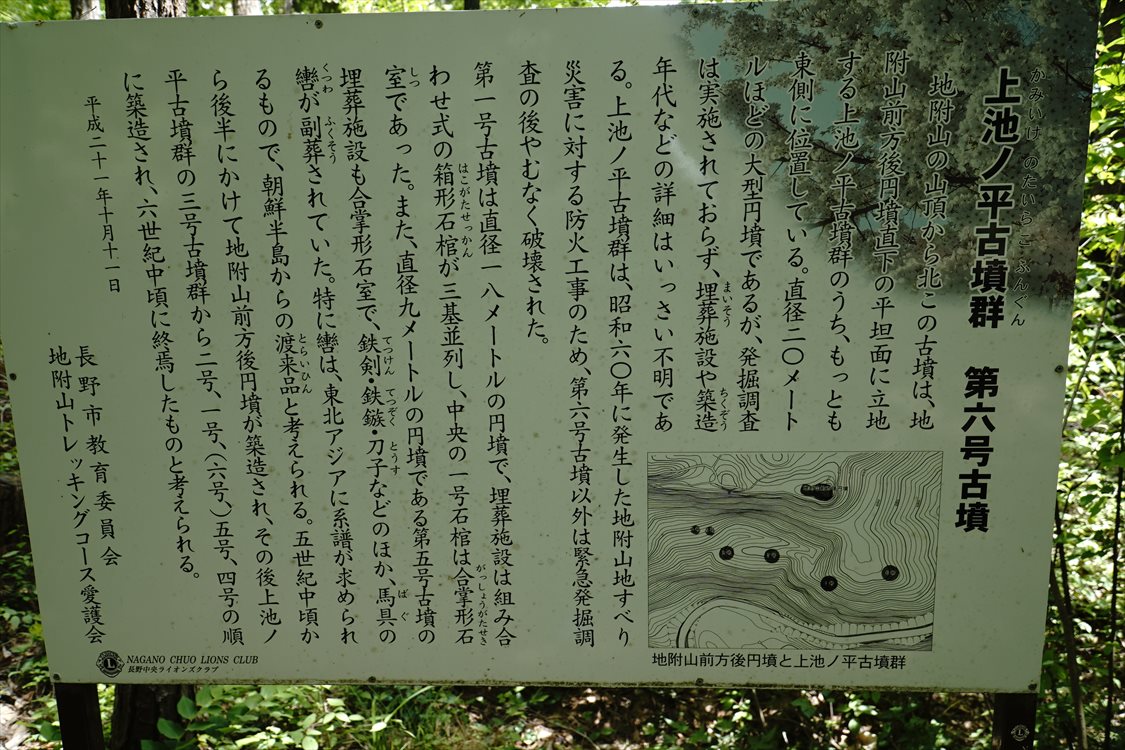 かみいけ のたいらこふんぐん
上池ノ平古墳群　第六号古墳
地附山の山頂から北この古墳は、地
附山前方後円墳直下の平坦面に立地
する上池ノ平古墳群のうち、もっとも
東側に位置している。直径二〇メート
ルほどの大型円墳であるが、発掘調査
は実施されておらず、埋葬施設や築造
まいそう ちくぞう
年代などの詳細はいっさい不明であ
る。上池ノ平古墳群は、昭和六〇年に発生した地附山地すべり
災害に対する防火工事のため、第六号古墳以外は緊急発掘調
査の後やむなく破壊された。
第一号古墳は直径一八メートルの円墳で、埋葬施設は組み合
わせ式の箱形石棺が三基並列し、中央の一号石棺は合掌形石
はこがたせっかん がっしょうがたせき
室であった。また、直径九メートルの円墳である第五号古墳の
しつ
埋葬施設も合掌形石室で、鉄剣・鉄鏃・刀子などのほか、馬具の
てつけん てつぞく とうす ばぐ
轡が副葬されていた。特に轡は、東北アジアに系譜が求められ
くつわ ふくそう
るもので、朝鮮半島からの渡来品と考えられる。五世紀中頃か
とらいひん
ら後半にかけて地附山前方後円墳が築造され、その後上池ノ
平古墳群の三号古墳群から二号、一号、（六号、）五号、四号の順
に築造され、六世紀中頃に終焉したものと考えられる。
平成二十一年十月十一日
長野市教育委員会
地附山トレッキングコース愛護会
地附山前方後円墳と上池ノ平古墳群
NAGANO CHUO LIONS CLUB
長野中央ライオンズクラブ